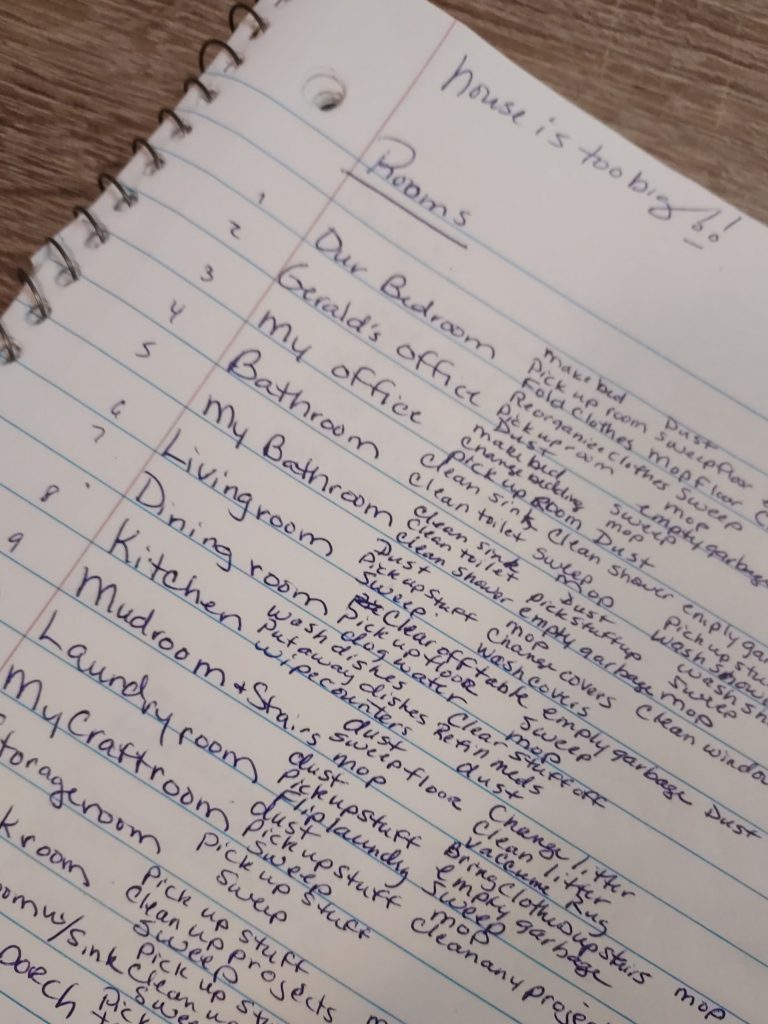 house is too big!!
Rooms
1 Our Bedroom make bed Dust
pick up room sweep floor
Fold clothes mop floor
Reorganize clothes sweep
2 Gerald's office pick up room mop
Dust
3 My office make bed sweep empty garbage
change bedding mop
pick up room Dust
4 Bathroom clean sink clean shower empty
clean toilet sweep mop
5 My Bathroom clean sink Dust pick up
clean toilet pick stuff up
clean shower empty garbage mop
6 Livingroom Dust mop wash
Pick up stuff change covers clean
Sweep wash covers
7 Dining room Clear off table empty garbage Dust
pick up floor sweep
dog water mop
8 Kitchen wash dishes clear stuff off
put away dishes Refill meds
wipe counters dust
9 Mudroom + Stairs sweep floor Change litter
dust mop clean litter
Vacuume Rug
Laundry room dust Bring clothes upstairs mop
pick up stuff empty garbage
Flip laundry sweep
My Craftroom dust mop
pick up stuff clean any
sweep
pick up stuff
sweep
room pick up stuff
clean up projects
sweep
w/sink pick up
clean up
porch